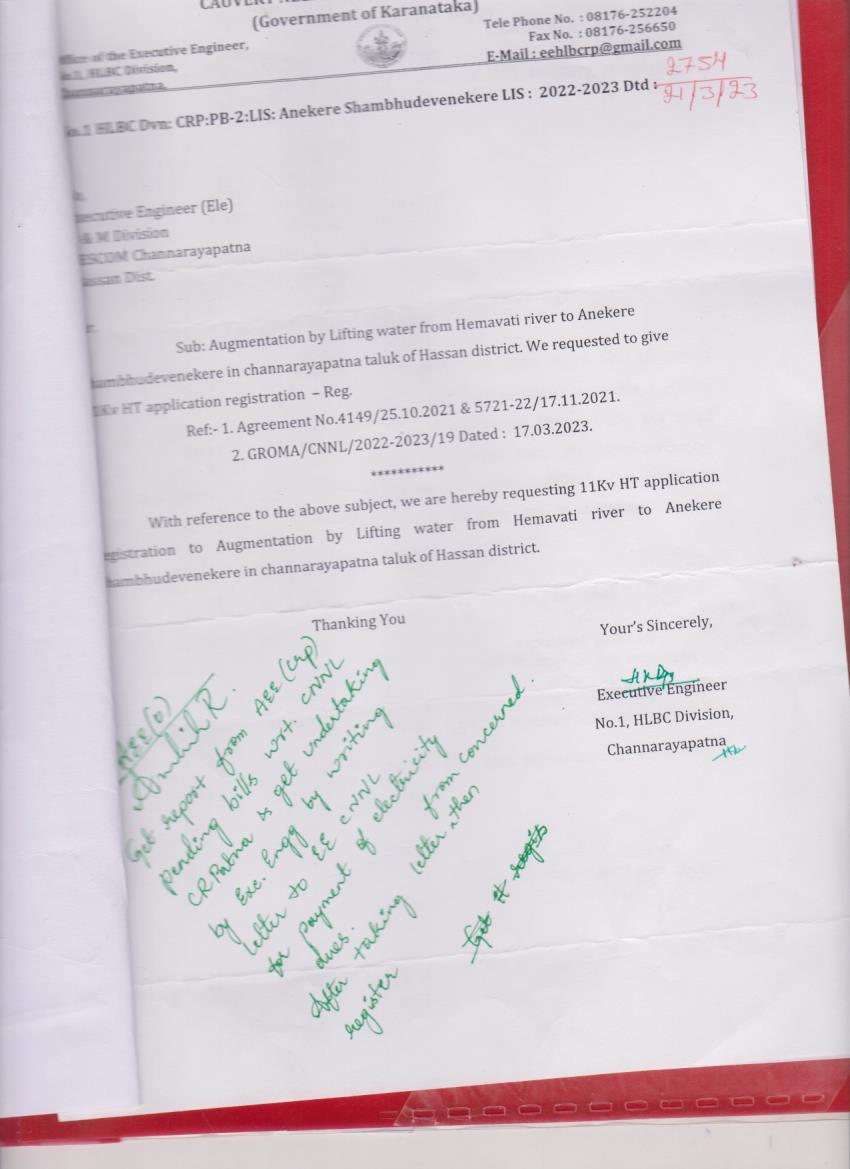 CAUVERY
(Government of Karanataka)
Tele Phone No. : 08176-252204
Fax No. : 08176-256650
E-Mail : eehlbcrp@gmail.com
Office of the Executive Engineer,
HLBC Division,
Channarayapatna.
2754
21/3/23
No.1 HLBC Dvn: CRP:PB-2:LIS: Anekere Shambhudevenekere LIS : 2022-2023 Dtd :
Executive Engineer (Ele)
& M Division
ESCOM Channarayapatna
assan Dist.
Sub: Augmentation by Lifting water from Hemavati river to Anekere
hambhudevenekere in channarayapatna taluk of Hassan district. We requested to give
1Kv HT application registration – Reg.
Ref:- 1. Agreement No.4149/25.10.2021 & 5721-22/17.11.2021.
2. GROMA/CNNL/2022-2023/19 Dated : 17.03.2023.
***********
With reference to the above subject, we are hereby requesting 11Kv HT application
egistration to Augmentation by Lifting water from Hemavati river to Anekere
hambhudevenekere in channarayapatna taluk of Hassan district.
Thanking You
Your's Sincerely,
Executive Engineer
No.1, HLBC Division,
Channarayapatna
AEE(O)
Get report from AEE(Crp)
pending bills wrt. CNNL
CRPatna & get undertaking
by Exe. Engg by writing
letter to EE CNNL
for payment of electricity
dues. from concerned.
After taking letter, then
register
Get it